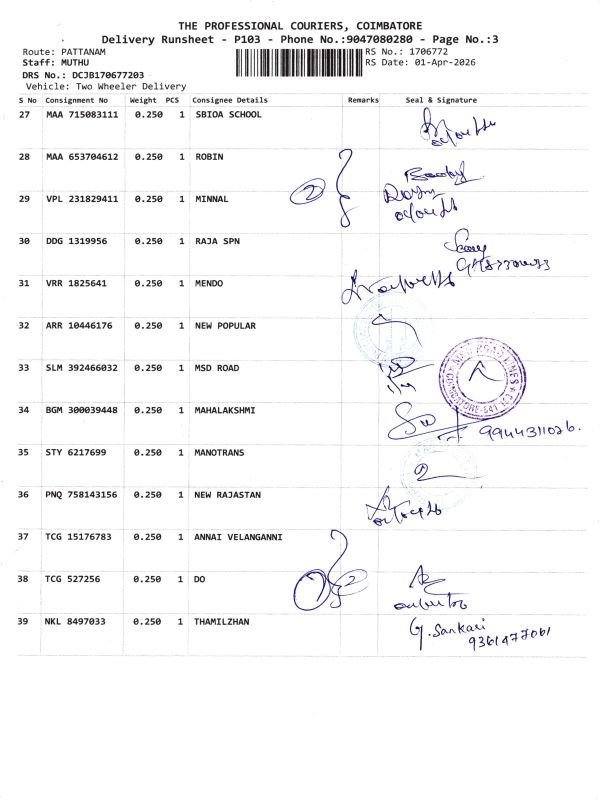 THE PROFESSIONAL COURIERS, COIMBATORE
Delivery Runsheet - P103 - Phone No.:9047080280 - Page No.:3
Route: PATTANAM RS No.: 1706772
Staff: MUTHU RS Date: 01-Apr-2026
DRS No.: DCJB170677203
Vehicle: Two Wheeler Delivery
S No Consignment No Weight PCS Consignee Details Remarks Seal & Signature
27 MAA 715083111 0.250 1 SBIOA SCHOOL
28 MAA 653704612 0.250 1 ROBIN
29 VPL 231829411 0.250 1 MINNAL
2
30 DDG 1319956 0.250 1 RAJA SPN
31 VRR 1825641 0.250 1 MENDO
32 ARR 10446176 0.250 1 NEW POPULAR
33 SLM 392466032 0.250 1 MSD ROAD
34 BGM 300039448 0.250 1 MAHALAKSHMI
9944311026.
35 STY 6217699 0.250 1 MANOTRANS
36 PNQ 758143156 0.250 1 NEW RAJASTAN
37 TCG 15176783 0.250 1 ANNAI VELANGANNI
38 TCG 527256 0.250 1 DO
39 NKL 8497033 0.250 1 THAMILZHAN G. Sankari
9361477061